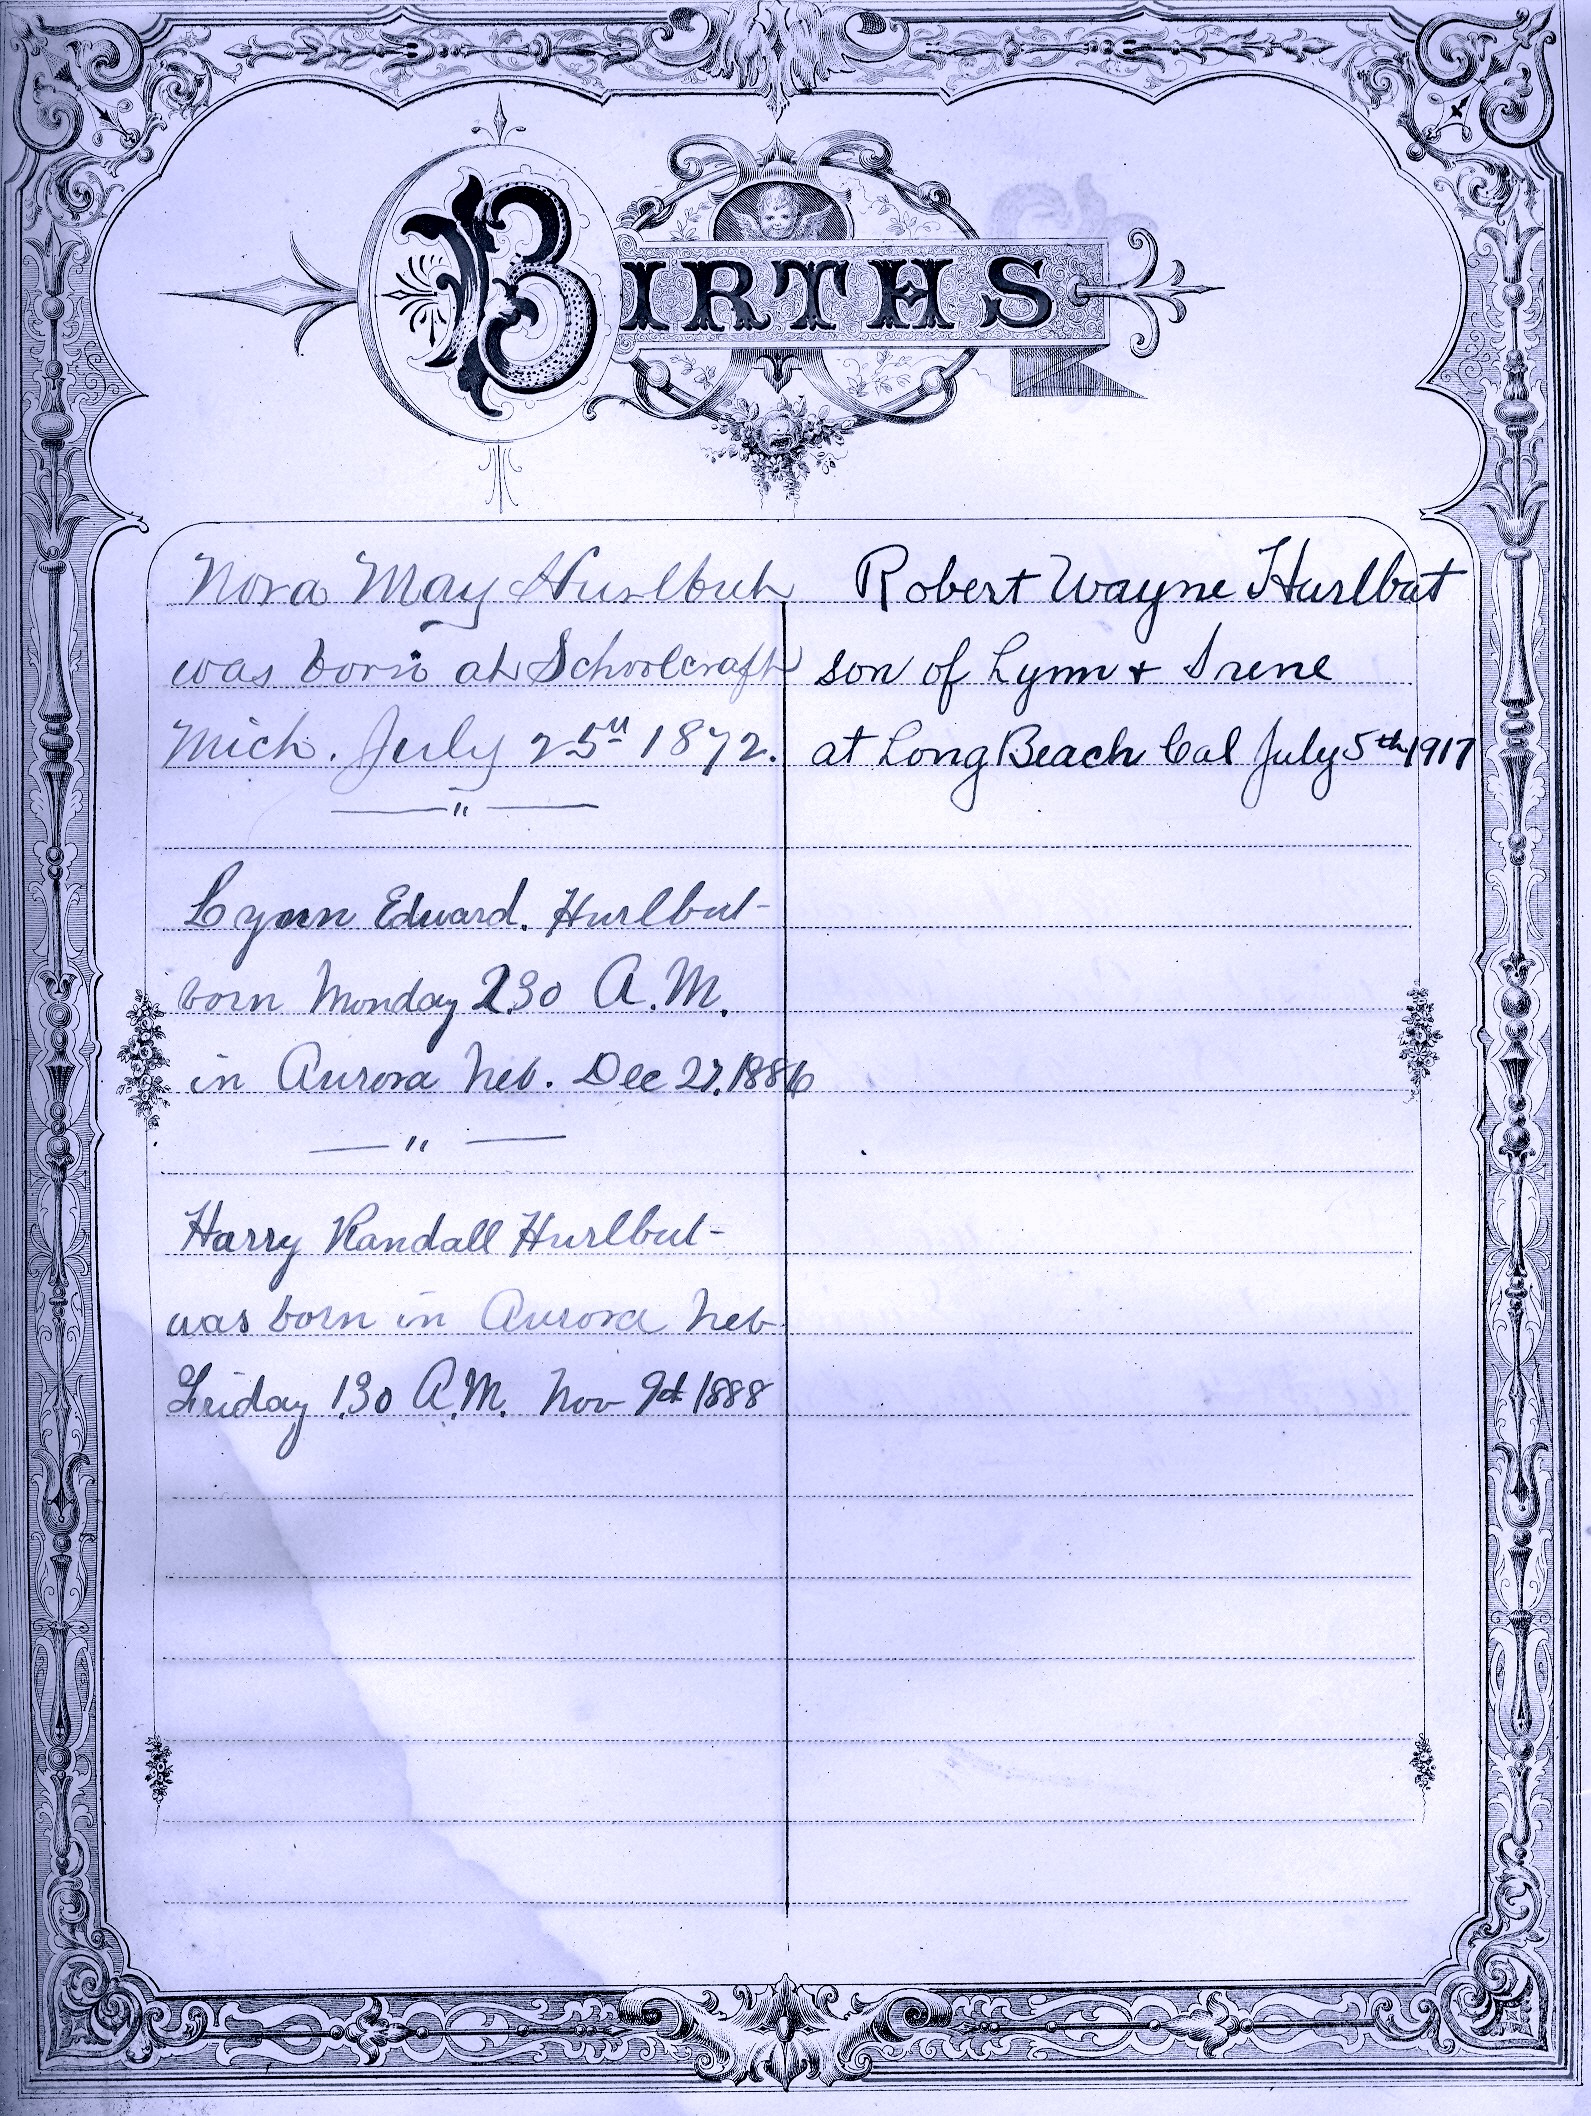 BIRTHS
Nora May Hurlbut
was born at Schoolcraft
Mich. July 25th 1872.
— " —
Lynn Edward. Hurlbut
born Monday 2.30 A.M.
in Aurora Neb. Dec 27, 1886
— " —
Harry Randall Hurlbut
was born in Aurora Neb
Friday 1.30 A.M. Nov 9th 1888
Robert Wayne Hurlbut
son of Lynn + Irene
at Long Beach Cal July 5th 1917